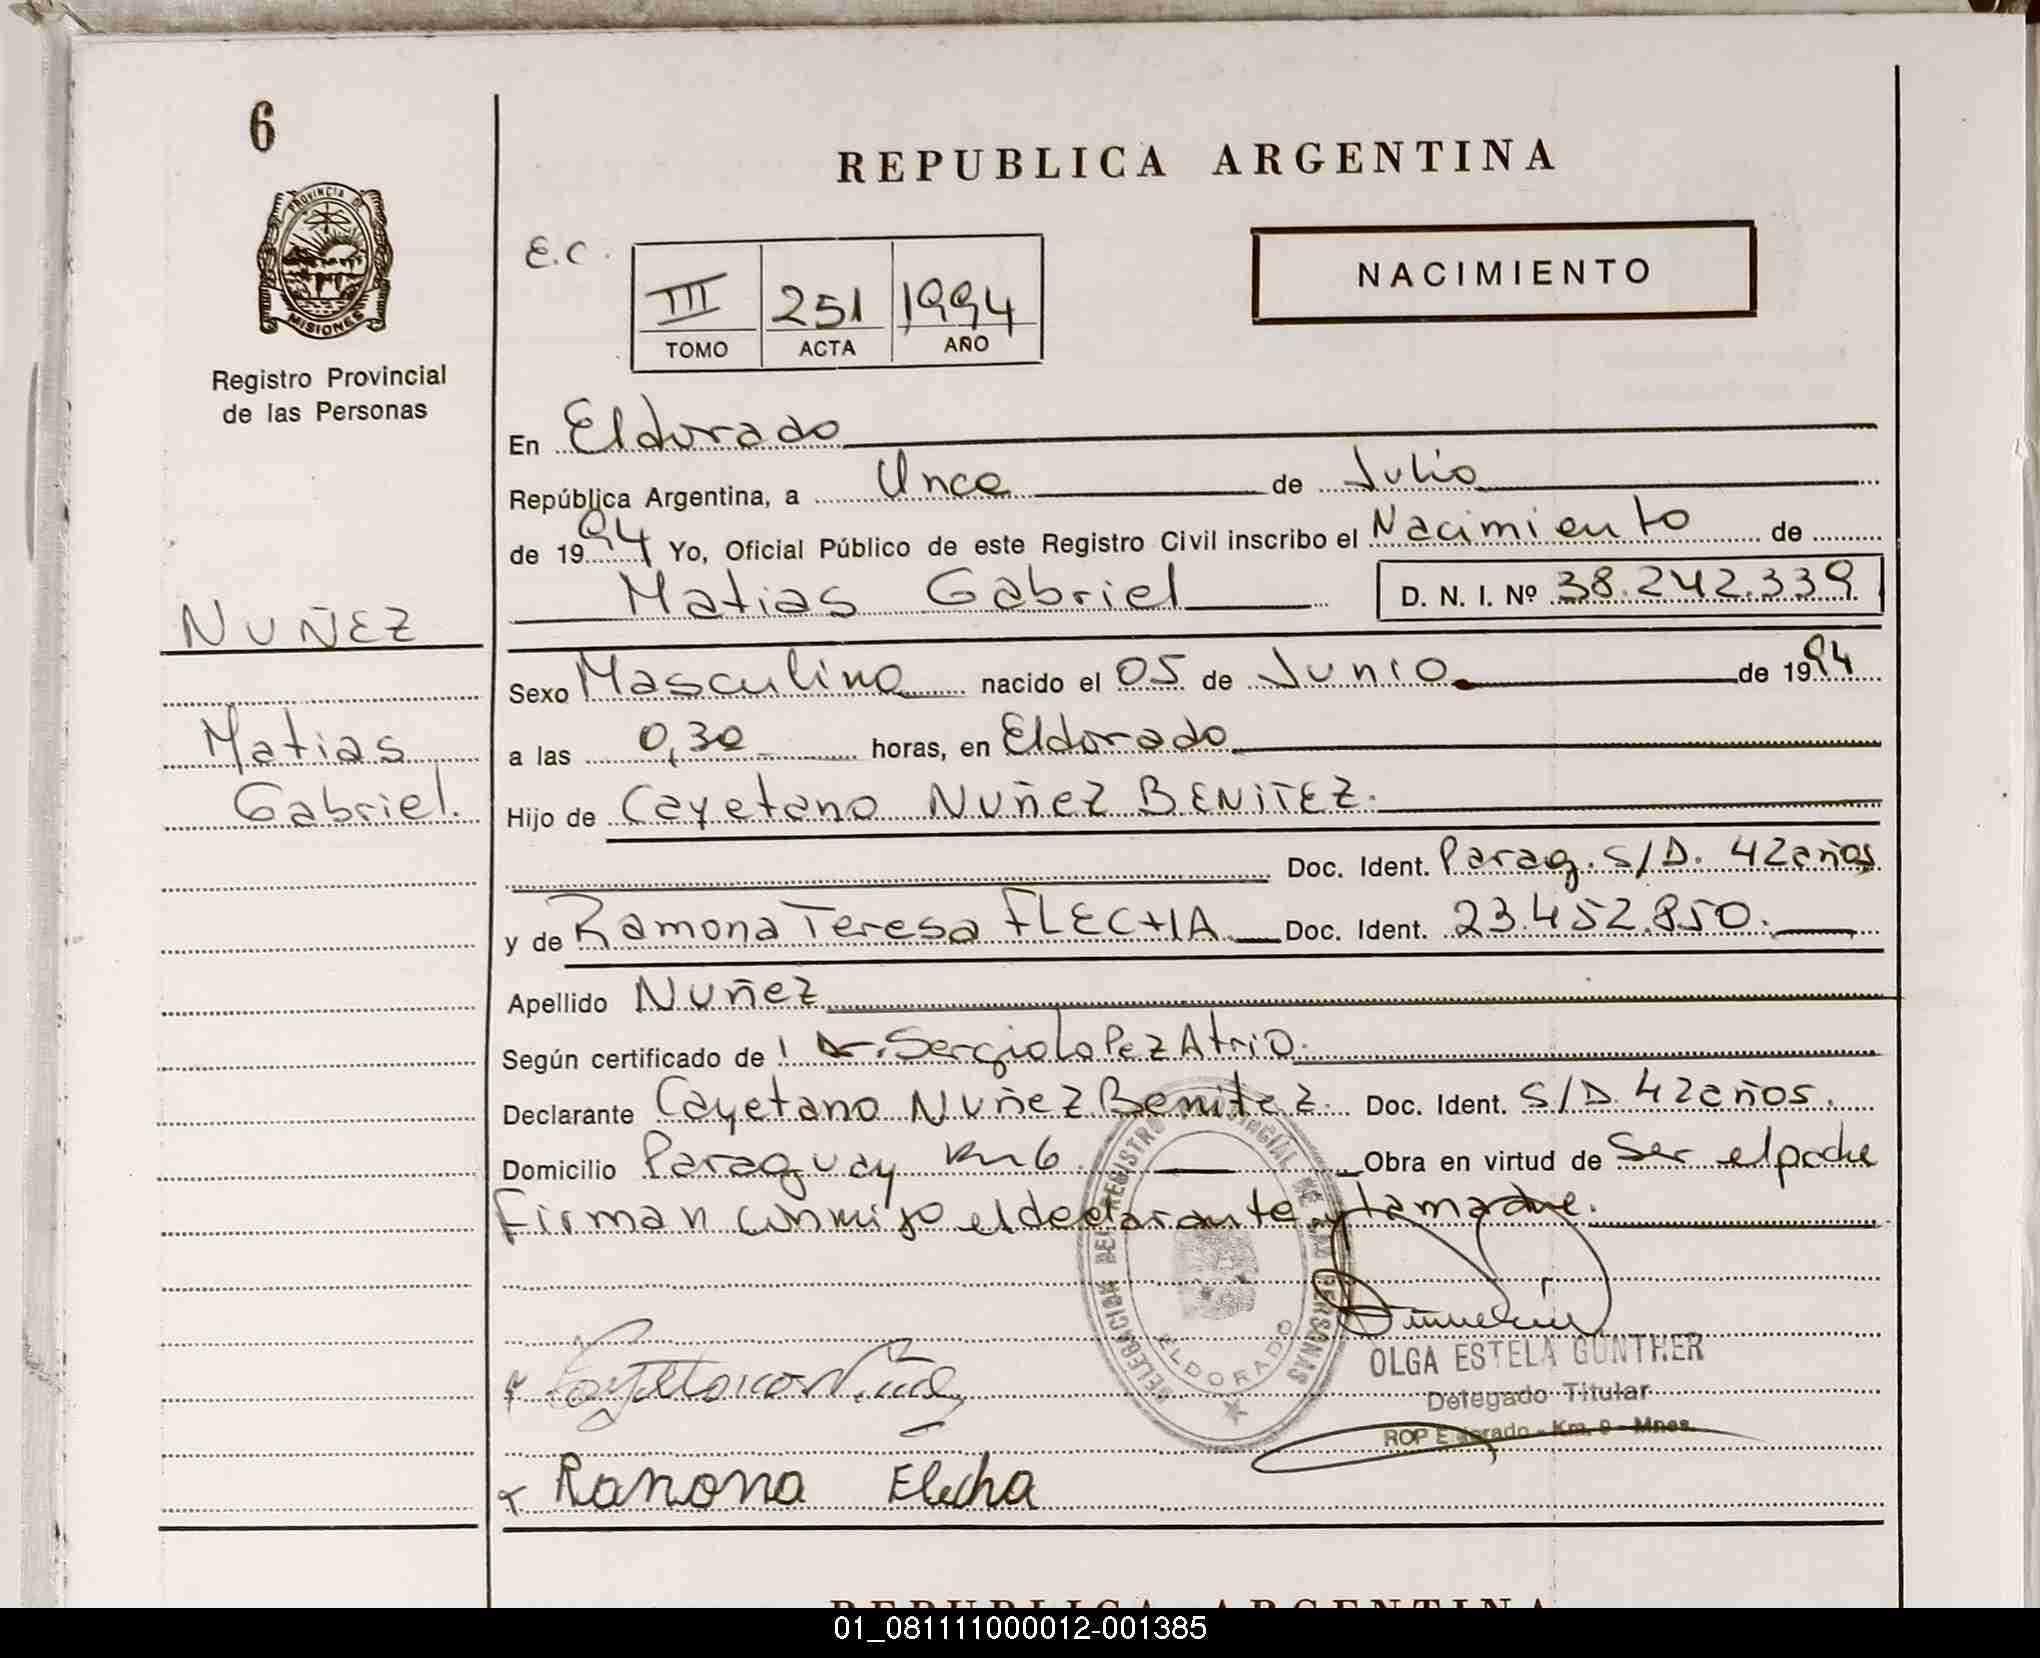 6
REPUBLICA ARGENTINA
PROVINCIA DE
MISIONES
Registro Provincial
de las Personas
E.C.
III 251 1994
TOMO ACTA AÑO
NACIMIENTO
En Eldorado
República Argentina, a Once de Julio
de 1994 Yo, Oficial Público de este Registro Civil inscribo el Nacimiento de
Matias Gabriel D. N. I. Nº 38.242.339
NUÑEZ
Matias
Gabriel.
Sexo Masculino nacido el 05 de Junio de 1994
a las 0,30 horas, en Eldorado
Hijo de Cayetano Nuñez BENITEZ.
Doc. Ident. Parag. S/D. 42 años
y de Ramona Teresa FLECHA Doc. Ident. 23.452.850.
Apellido Nuñez
Según certificado de Dr. Sergio Lopez Atrio.
Declarante Cayetano Nuñez Benitez. Doc. Ident. S/D. 42 años.
Domicilio Paraguay Km 6 Obra en virtud de ser el padre
Firman conmigo el declarante y la madre.
DELEGACION DEL REGISTRO PROVINCIAL DE LAS PERSONAS
ELDORADO
OLGA ESTELA GUNTHER
Delegado Titular
ROP Eldorado - Km. 9 - Mnes.
Ramona Flecha
REPUBLICA ARGENTINA
01_081111000012-001385